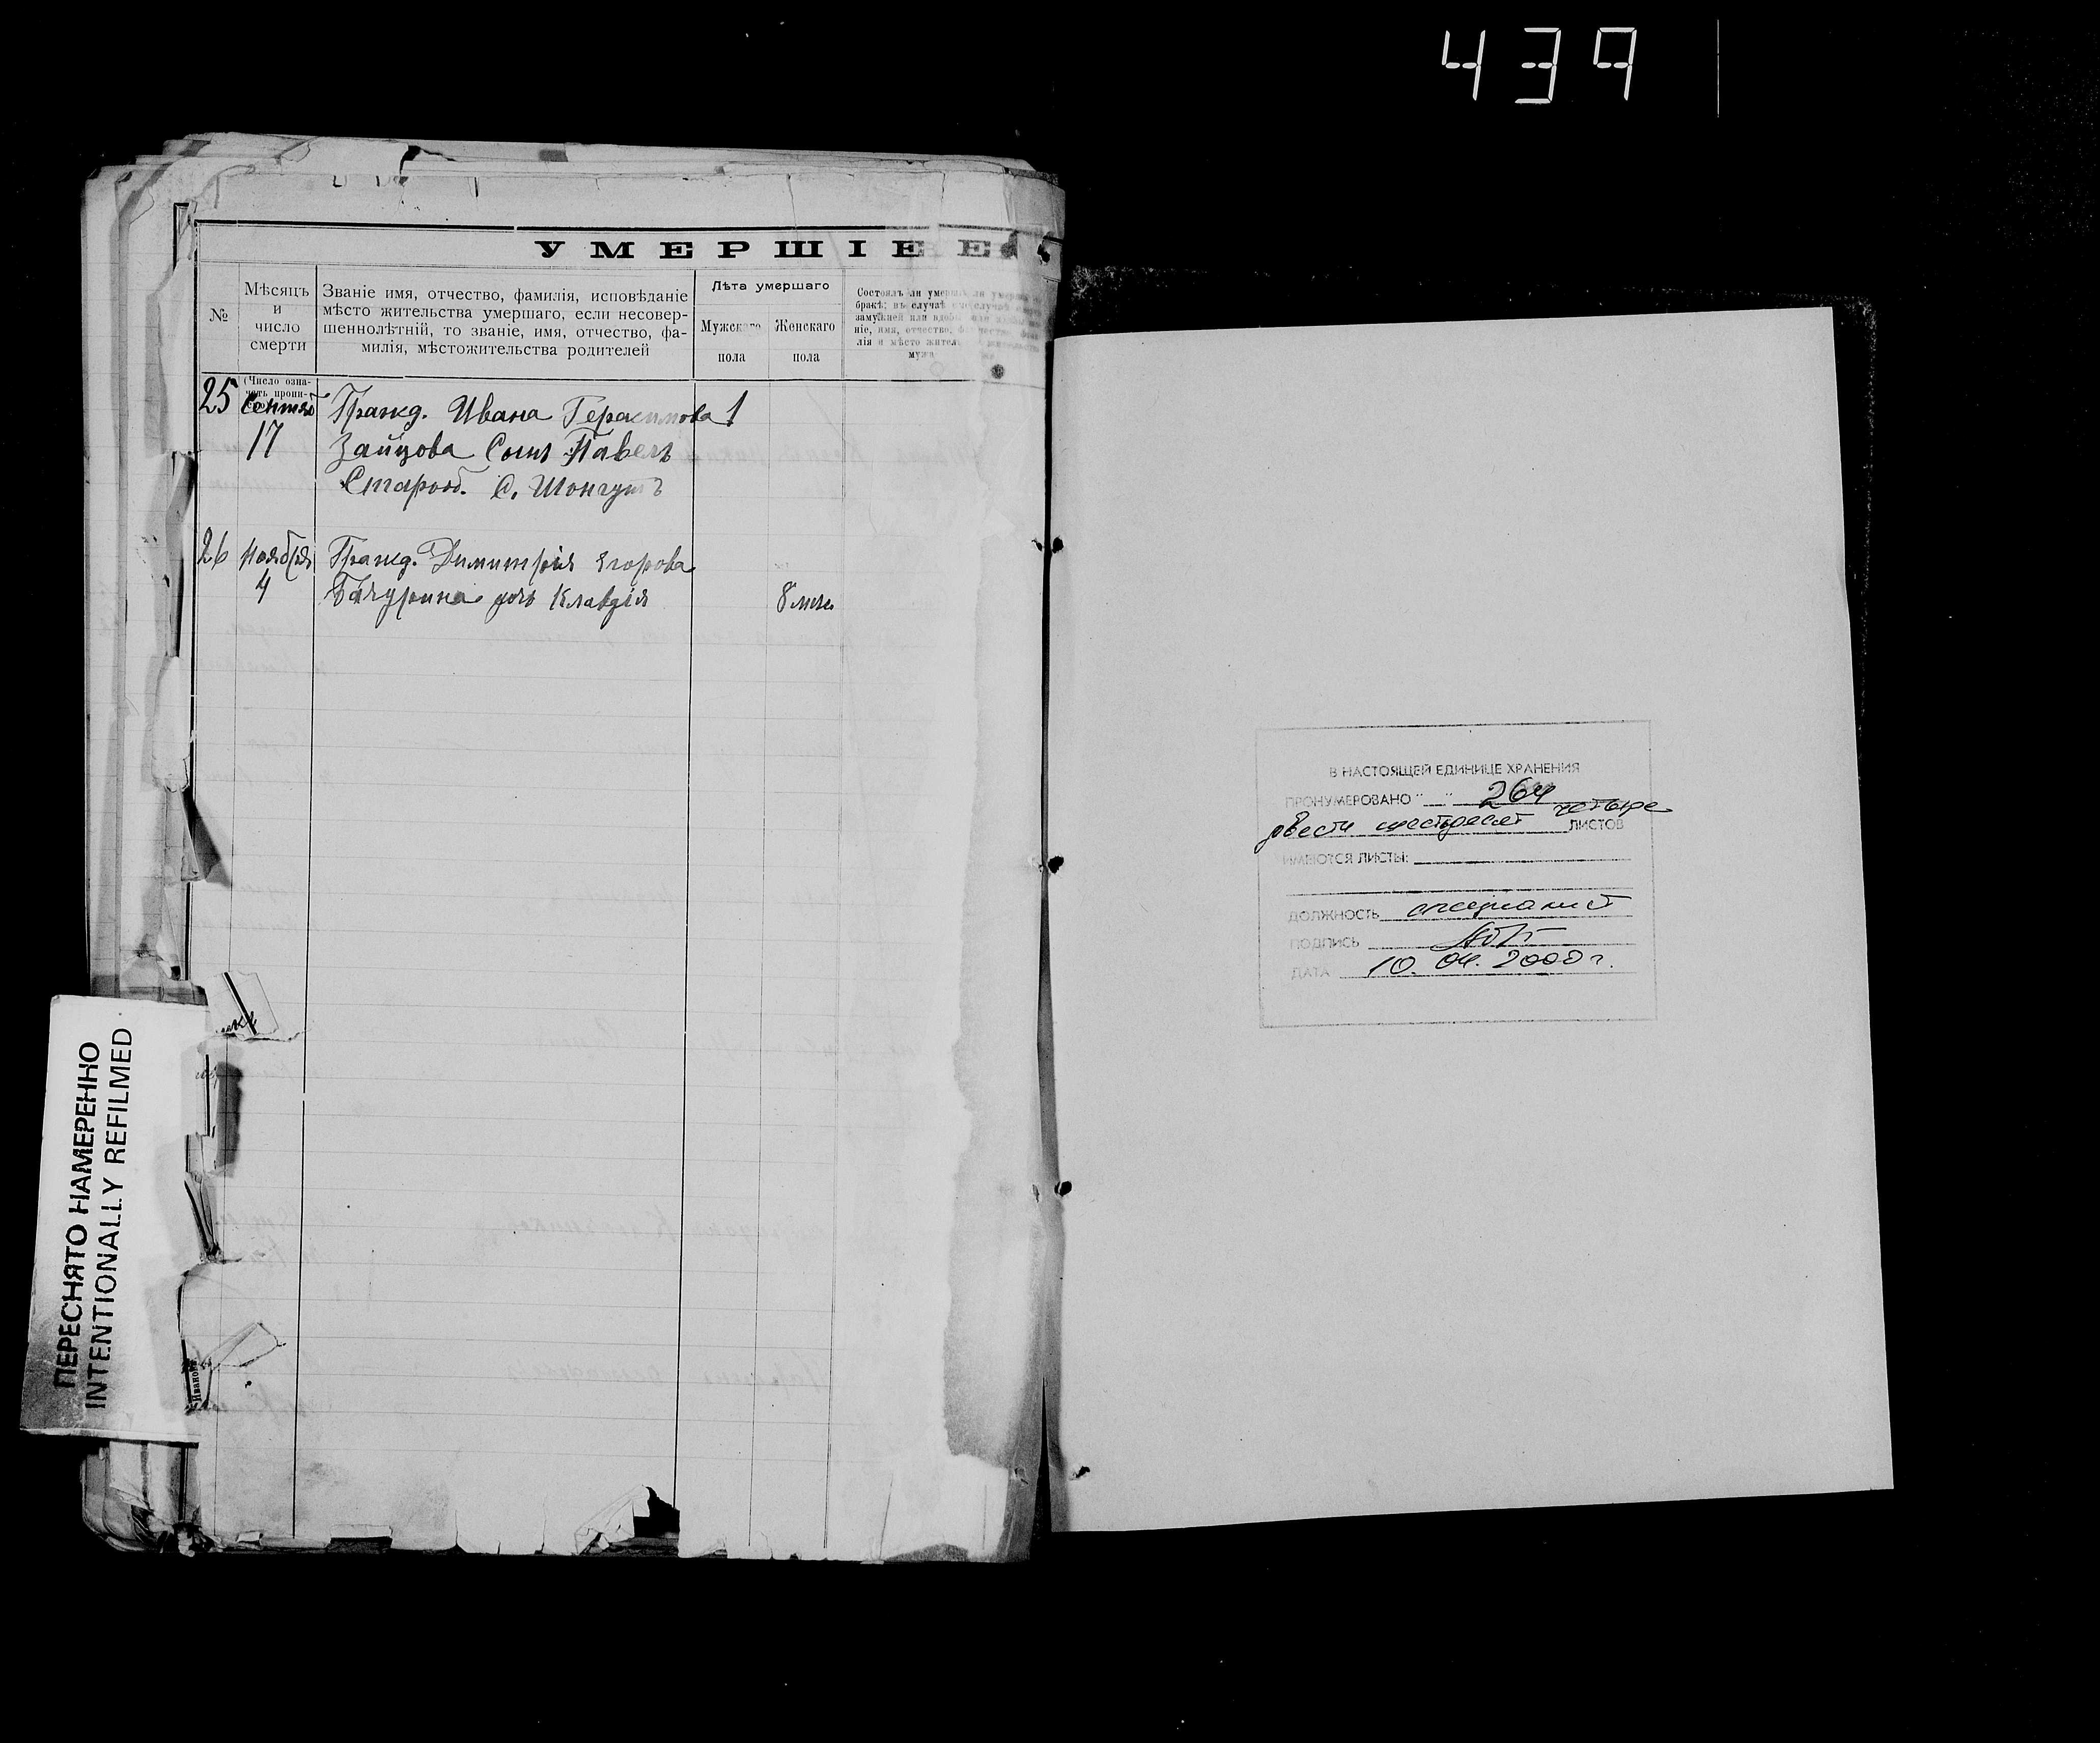 439
УМЕРШІЕ
№
Мѣсяцъ
и
число
смерти
Званіе имя, отчество, фамилія, исповѣданіе
мѣсто жительства умершаго, если несовер-
шеннолѣтній, то званіе, имя, отчество, фа-
милія, мѣстожительства родителей
Лѣта умершаго
Мужскаго
пола
Женскаго
пола
Состоялъ ли
бракѣ; въ случаѣ
замужней или
ніе, имя, отчество,
лія и мѣсто житель
мужа
(Число озна-
25 Сентяб Гражд. Ивана Герасимова 1
17 Зайцова Сынъ Павелъ
Староб. С. Шонгутъ
26 Ноября Гражд. Димитрія Егорова
4 дочь Клавдія 8 мѣс
ПЕРЕСНЯТО НАМЕРЕННО
INTENTIONALLY REFILMED
Иванов
В НАСТОЯЩЕЙ ЕДИНИЦЕ ХРАНЕНИЯ
ПРОНУМЕРОВАНО " " 264
двести шестьдесят четыре ЛИСТОВ
ИМЕЮТСЯ ЛИСТЫ:
ДОЛЖНОСТЬ специалист
ПОДПИСЬ
ДАТА 10. 04. 2000 г.